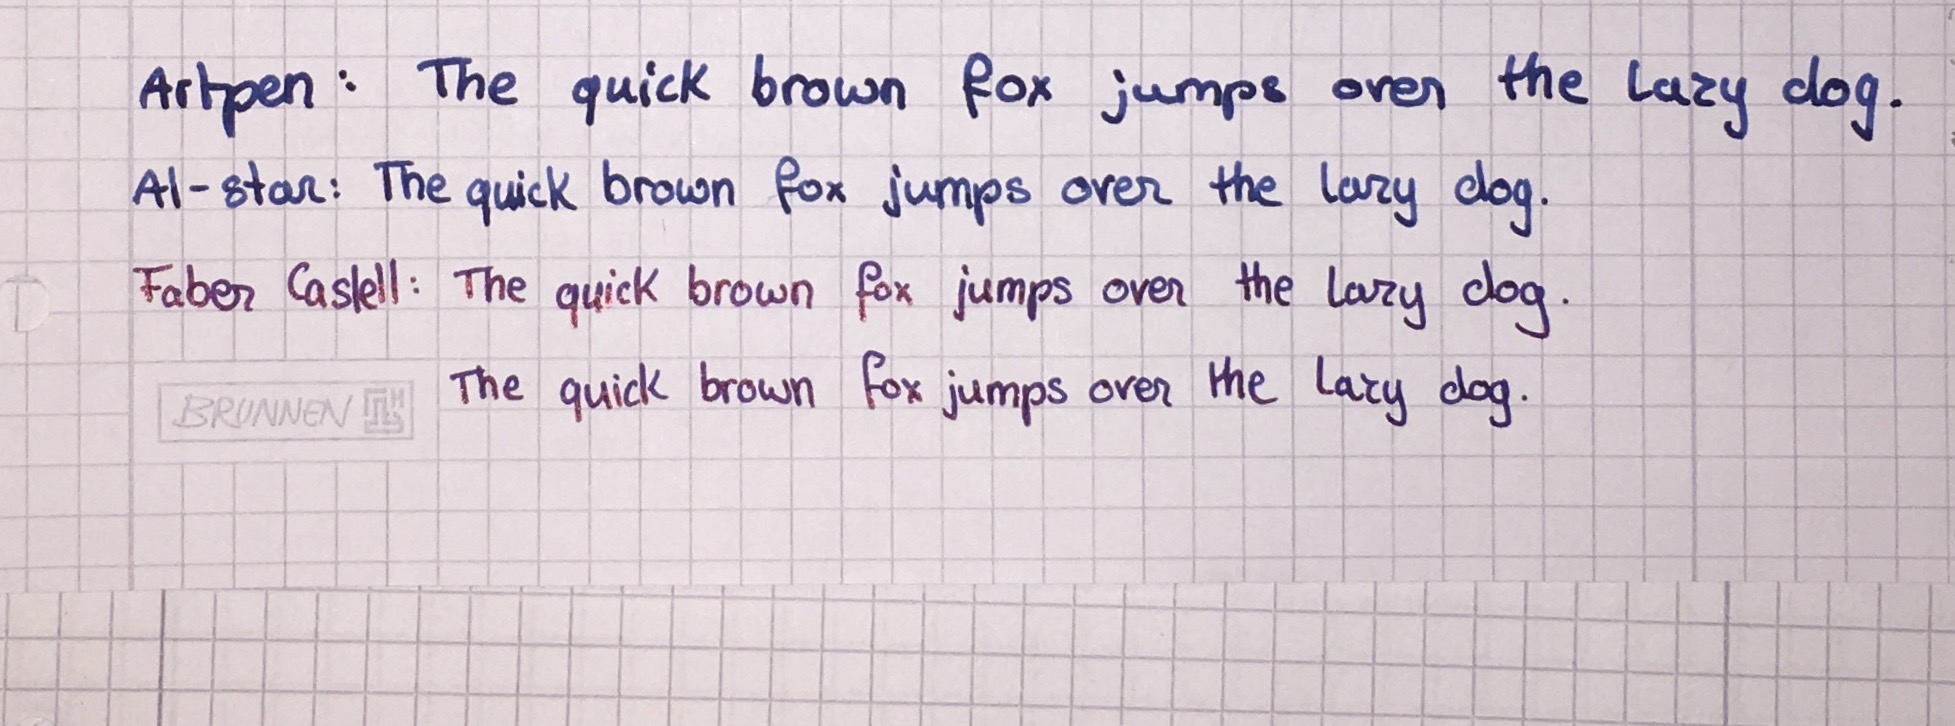 Artpen: The quick brown fox jumps over the lazy dog.
Al-star: The quick brown fox jumps over the lazy dog.
Faber Castell: The quick brown fox jumps over the lazy dog.
The quick brown fox jumps over the lazy dog.
BRUNNEN